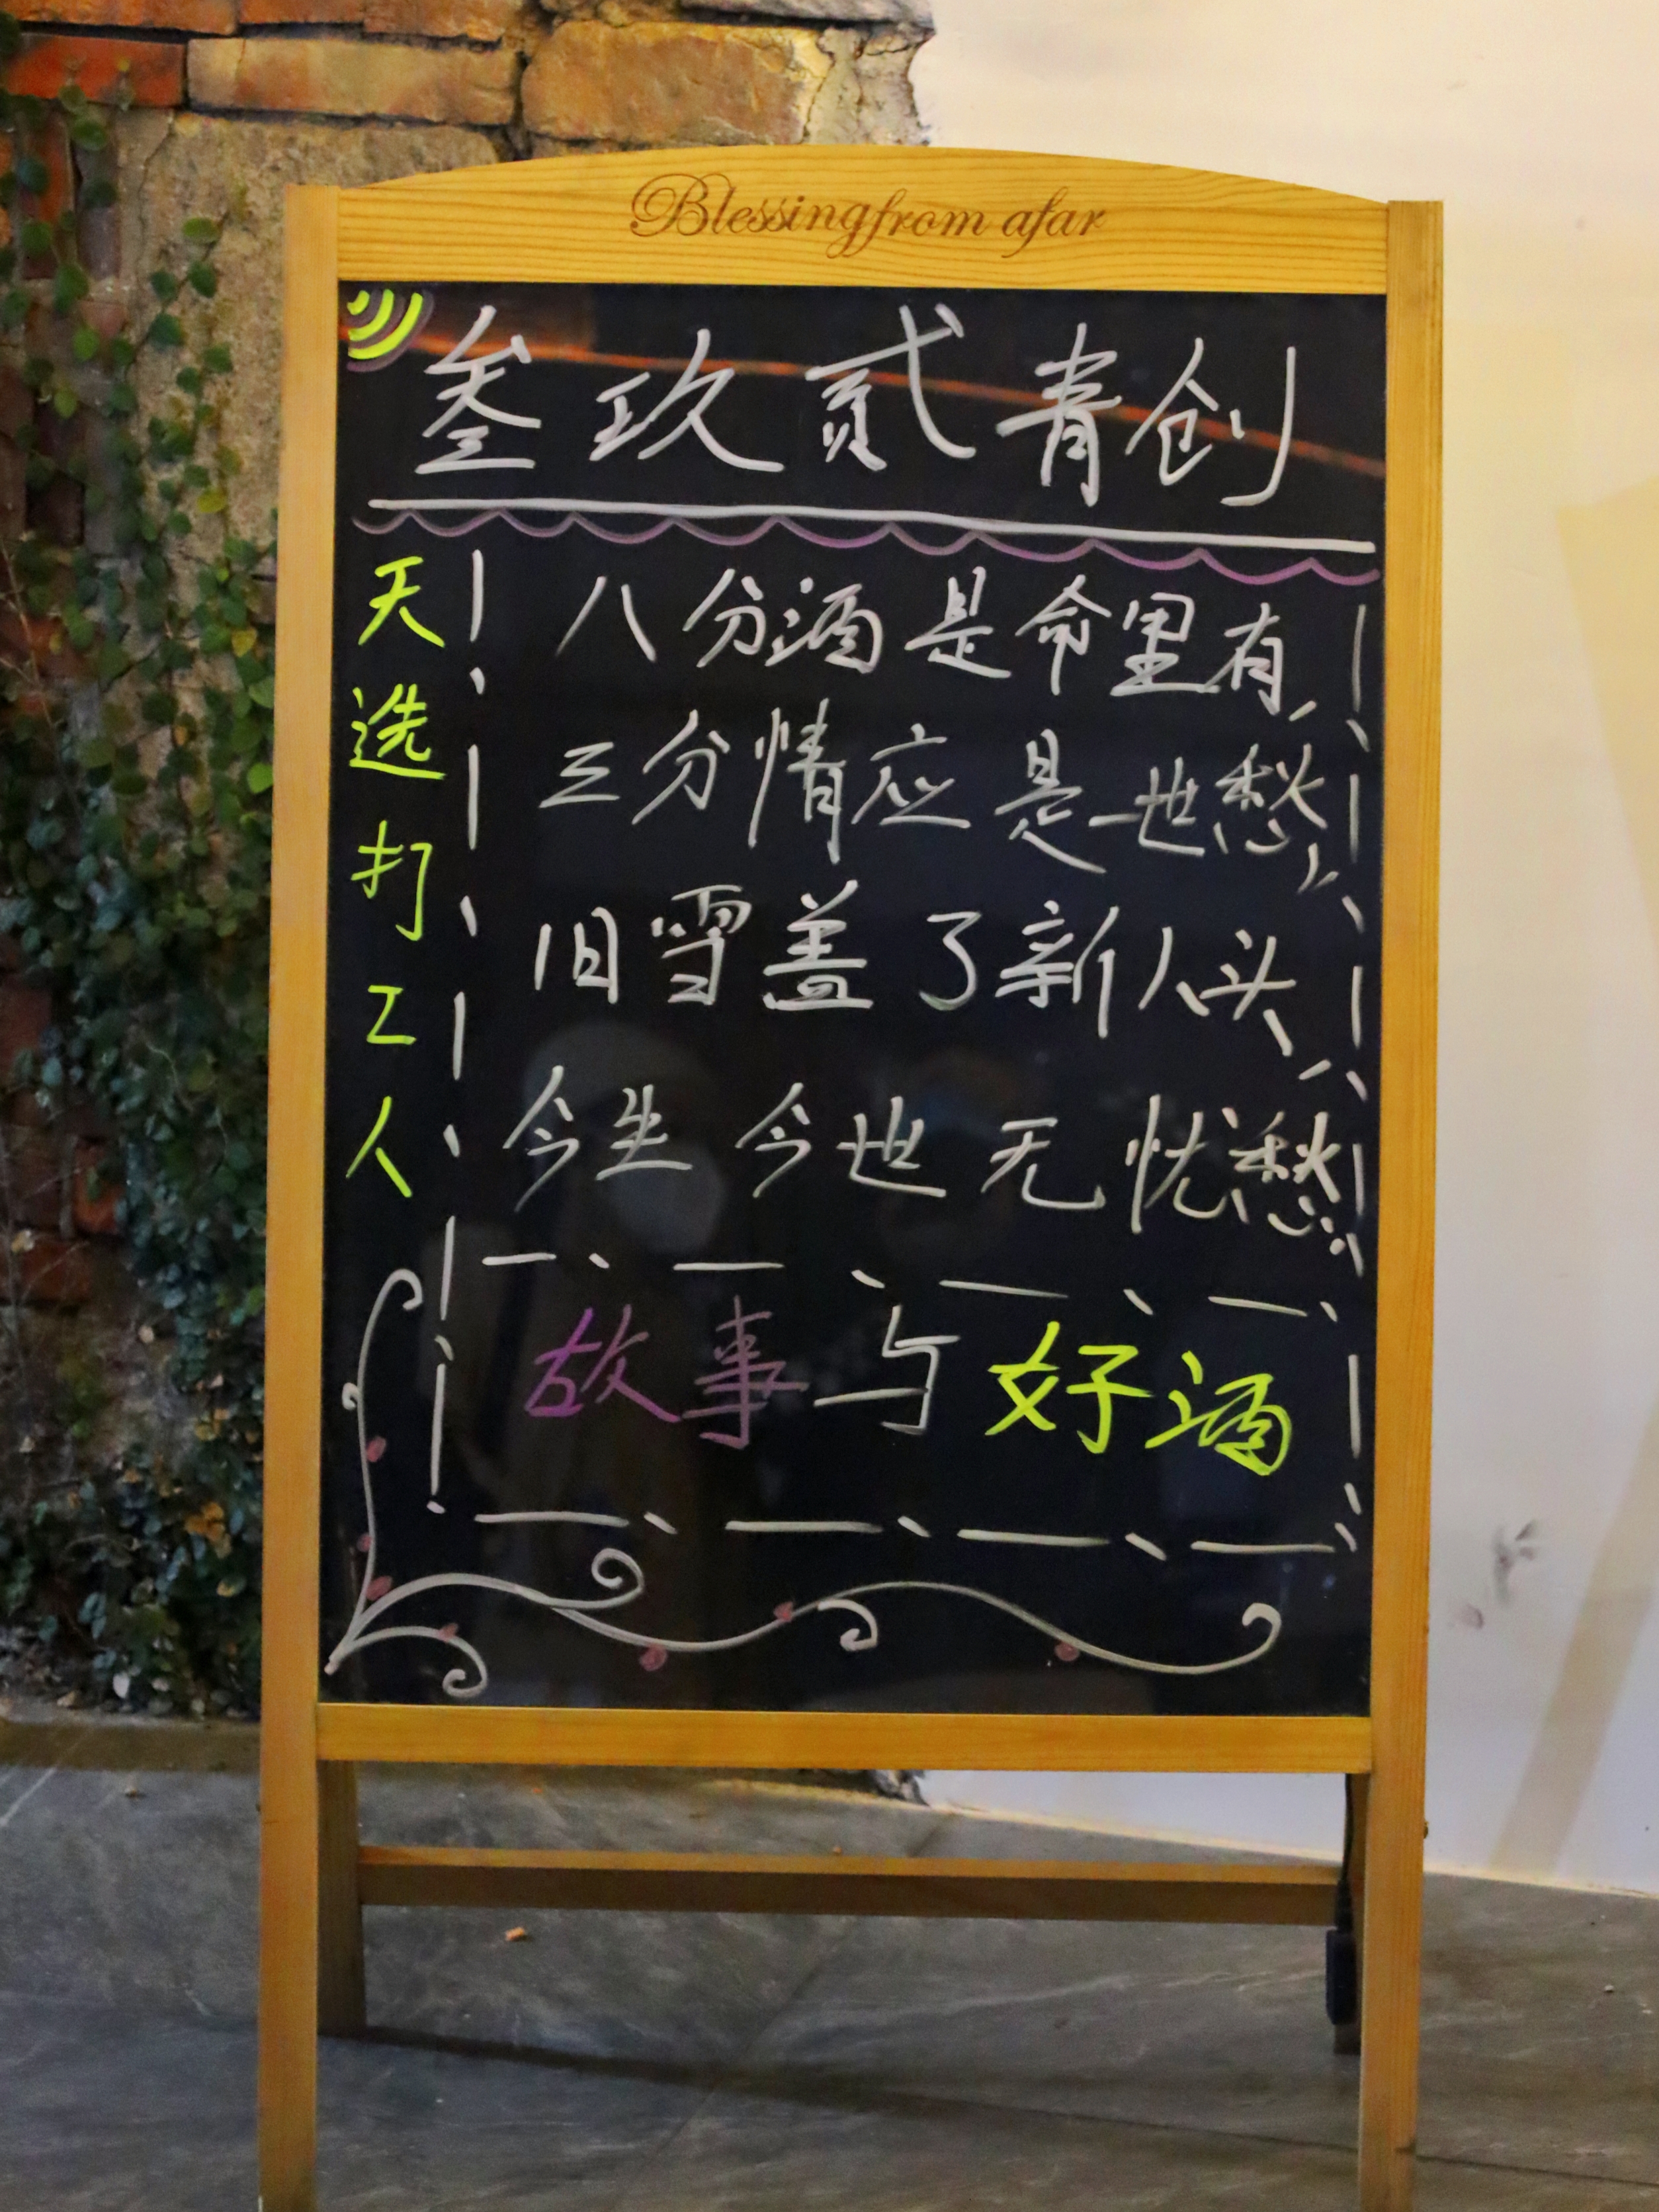 Blessing from afar
叁玖贰青创
天选打工人
八分酒是命里有,
三分情应是一世愁,
旧雪盖了新人头,
今生今世无忧愁。
故事与好酒